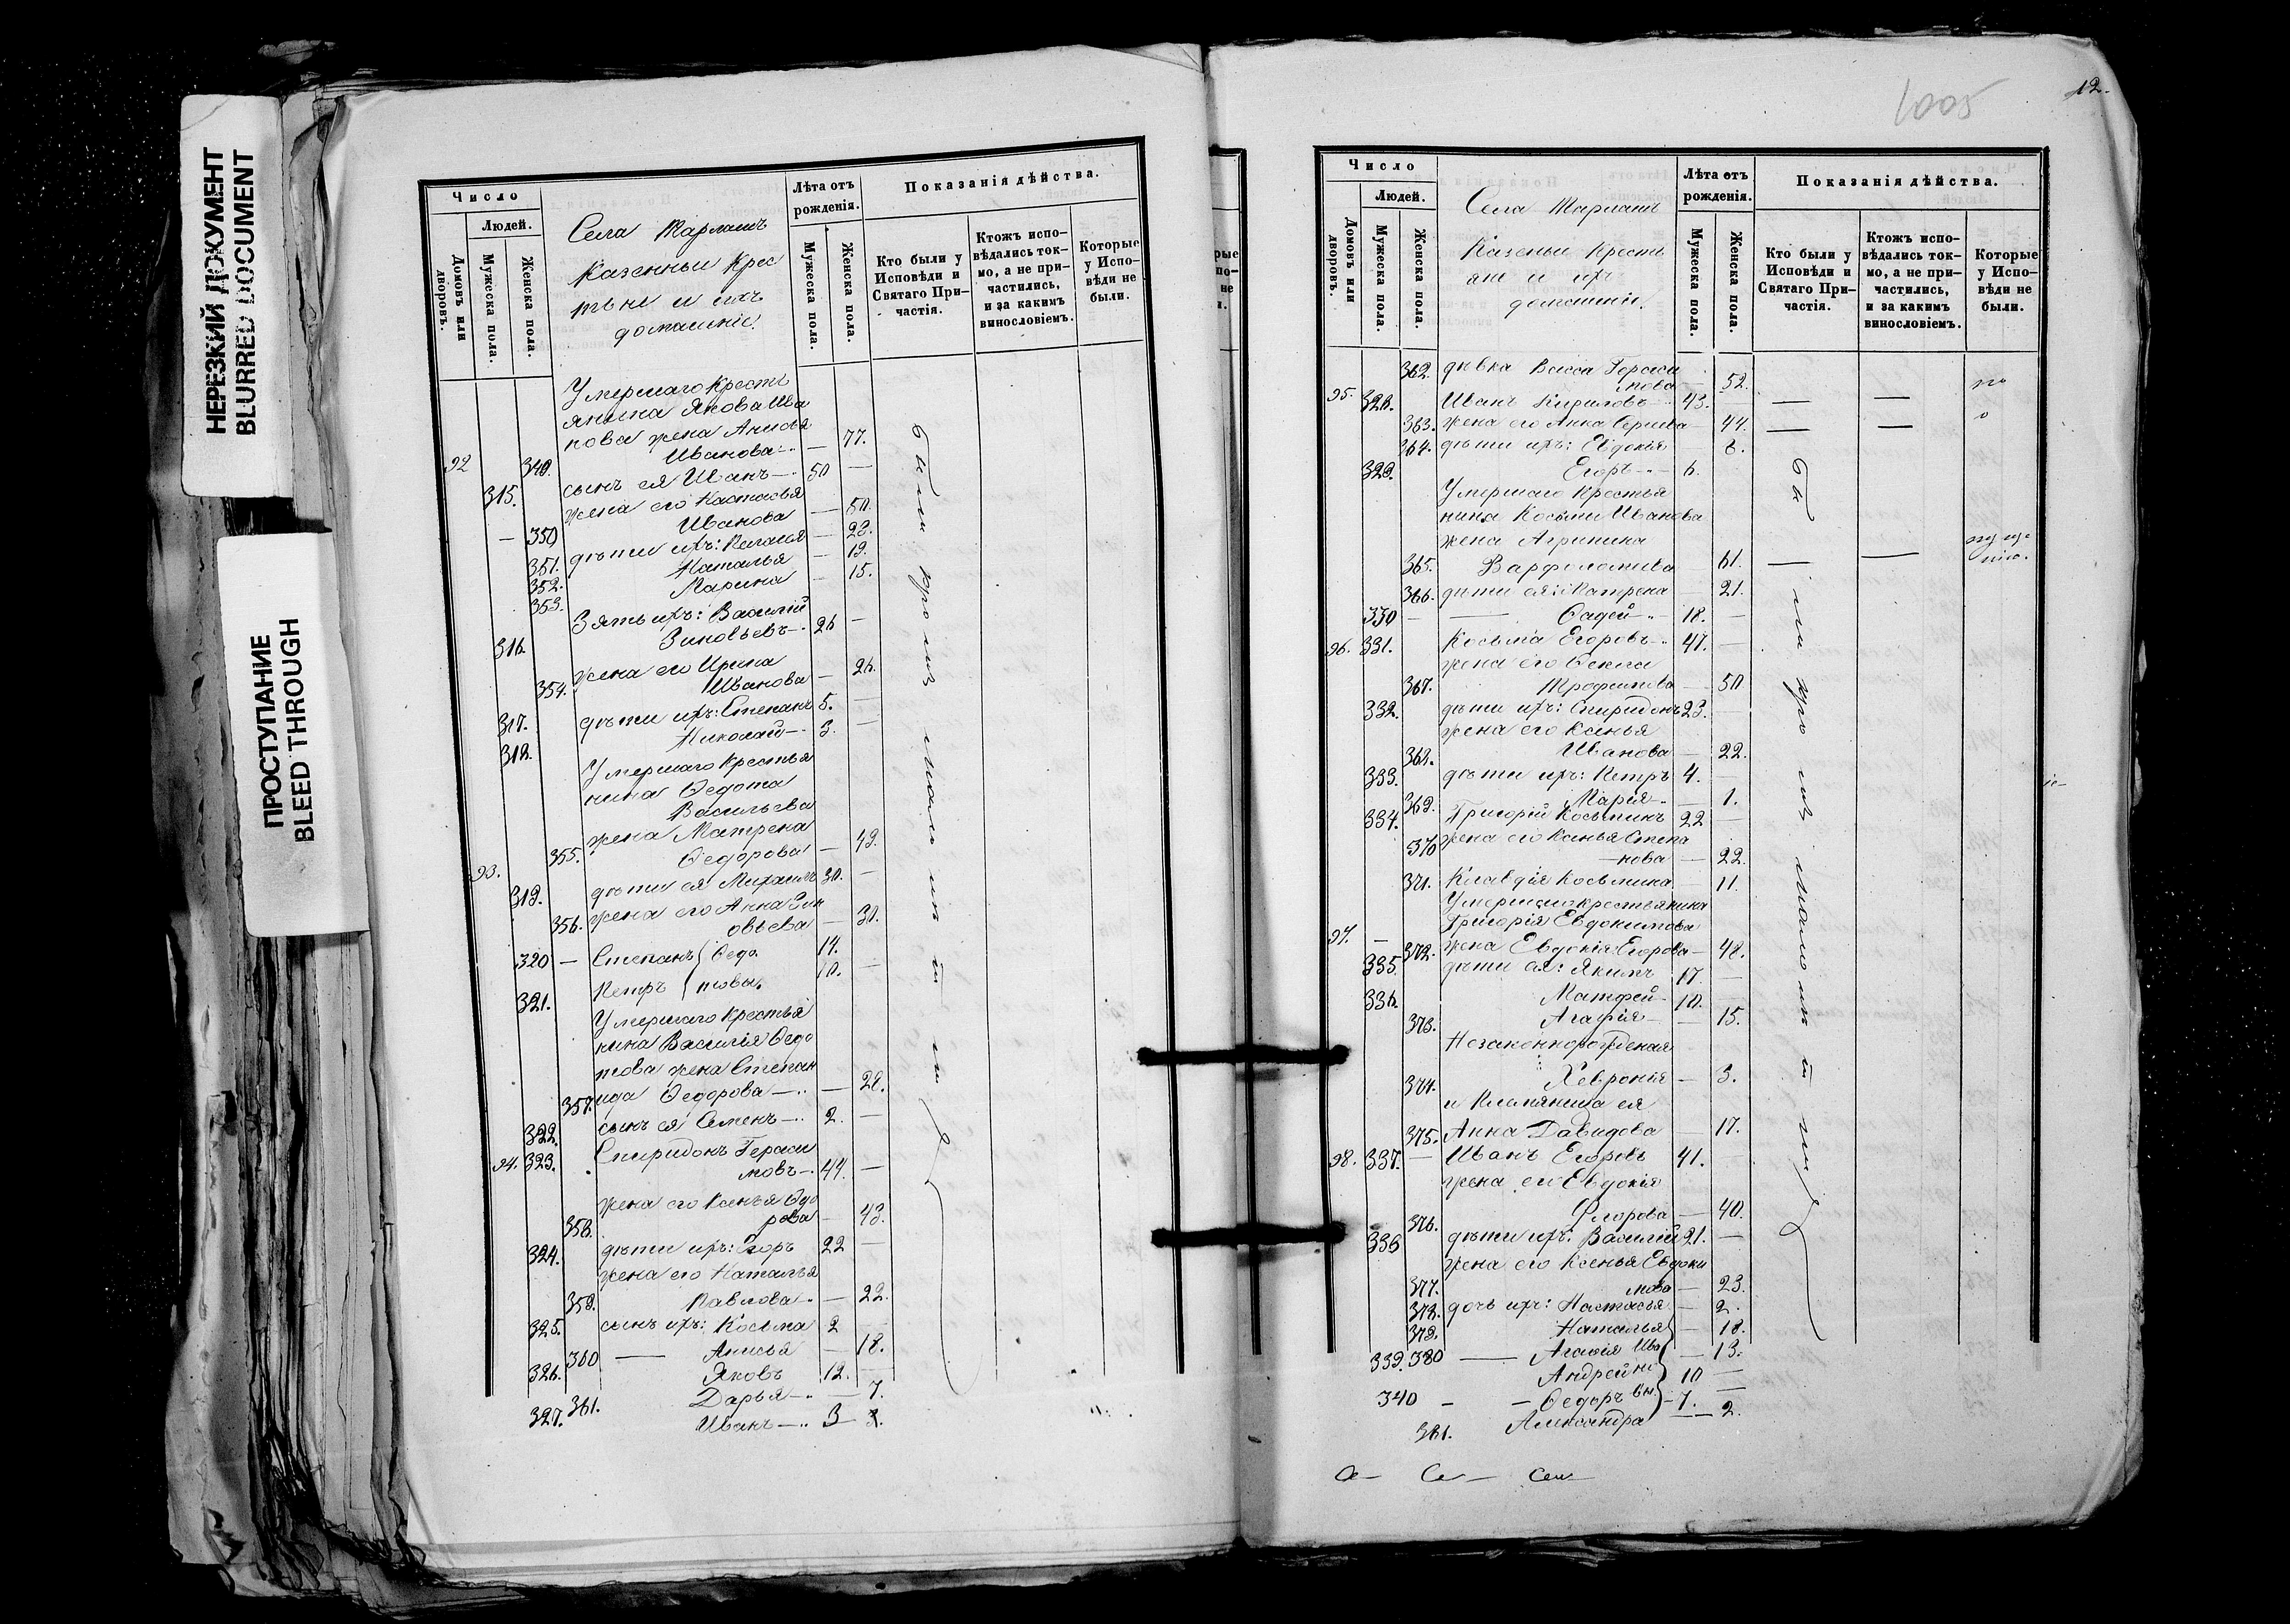 НЕРЕЗКИЙ ДОКУМЕНТ
BLURRED DOCUMENT
ПРОСТУПАНИЕ
BLEED THROUGH
Число
Людей.
Домовъ или дворовъ.
Мужеска пола.
Женска пола.
Села
Казенныи Крес
тьне и ихъ
домашніе.
Лѣта отъ рожденія.
Мужеска пола.
Женска пола.
Показанія дѣйства.
Кто были у Исповѣди и Святаго При-частія.
Ктожъ испо-вѣдались ток-мо, а не при-частились, и за какимъ винословіемъ.
Которые у Испо-вѣди не были.
Умершаго Кресть
янина Якова Ива
нова жена Анисья
92 349. Иванова — 77.
315. сынъ ея Иванъ — 50 —
жена его Настасья
— 350 Иванова — 50.
351. дѣти ихъ: Пелагія — 22.
352. Наталья — 19.
353. Марина — 15.
Зять ихъ: Василій
316. Зиновьевъ — 26 —
жена его Ирина
354. Иванова — 26.
317. дѣти ихъ: Степанъ 5. —
318. Николай — 3. —
Умершаго Крестья
нина Ѳедота
Васильева
жена Матрена
93. 355. Ѳедорова — 49.
319. дѣти ея Михаилъ 30. —
жена его Анна Зин
356. овьева — 30.
320 — Степанъ Ѳедо 14.
321. Петръ товы. 10. —
Умершаго Крестья
нина Василія Ѳедо
това жена Степан
357. ида Ѳедорова — 28.
322. сынъ ея Семенъ — 2. —
94. 323. Спиридонъ Гераси
мовъ — 44. —
жена его Ксенья Ѳдо
358. рова — 43.
324. дѣти ихъ: Егоръ 22 —
жена его Наталья
359. Павлова — 22.
325. сынъ ихъ: Косьма 2 —
360 — Анисья — 18.
326. Яковъ 12. —
361. Дарья — 7.
327. Иванъ — 3
были
1005
12.
Число
Людей.
Домовъ или дворовъ.
Мужеска пола.
Женска пола.
Села
Казеныи Кресть
яне и ихъ
домашніи.
Лѣта отъ рожденія.
Мужеска пола.
Женска пола.
Показанія дѣйства.
Кто были у Исповѣди и Святаго При-частія.
Ктожъ испо-вѣдались ток-мо, а не при-частились, и за какимъ винословіемъ.
Которые у Испо-вѣди не были.
362. дѣвка Васса Гераси
мова — 52.
95. 328. Иванъ Кириловъ 43. — — по
363. жена его Анна Сергиева — 44. — —
364. дѣти ихъ: Евдокія — 8.
329. Егоръ — 6.
Умершаго Крестья
нина Косьмы Иванова
жена Агрипина
365. Варфоломиева — 61. — —
366. дѣти ея: Матрена — 21.
330 — Ѳадей — 18. —
96. 331. Косьма Егоровъ 47. —
жена его Ѳекла
367. Трофимова — 50
332. дѣти ихъ: Спиридонъ 23. —
жена его Ксенья
368. Иванова — 22.
333. дѣти ихъ: Петръ 4. —
369. Марія — 1.
334. Григорій Косьминъ 22 —
370 жена его Ксенья Степа
нова — 22.
371. Клавдія Косьмина — 11.
Умершаго крестьянина
Григорія Евдокимова
97. — 372. жена Евдокія Егорова — 48.
335. дѣти ея: Якимъ 17. —
336. Матфей 10. —
373. Агафія — 15.
Незаконнорожденая
374. Хевронія — 3.
и Племяница ея
375. Анна Давидова — 17.
98. 337. — Иванъ Егоровъ 41. —
жена его Евдокія
376. Флорова — 40.
338 дѣти ихъ: Василій 21. —
жена его Ксенья Евдоки
377. мова — 23.
378. дочь ихъ: Настасья — 2.
379. Наталья — 18.
339. 380 — Агафія Ива — 13.
Андрей но 10 —
340 — — Ѳедоръ вы. 7. —
381. Александра — 2.